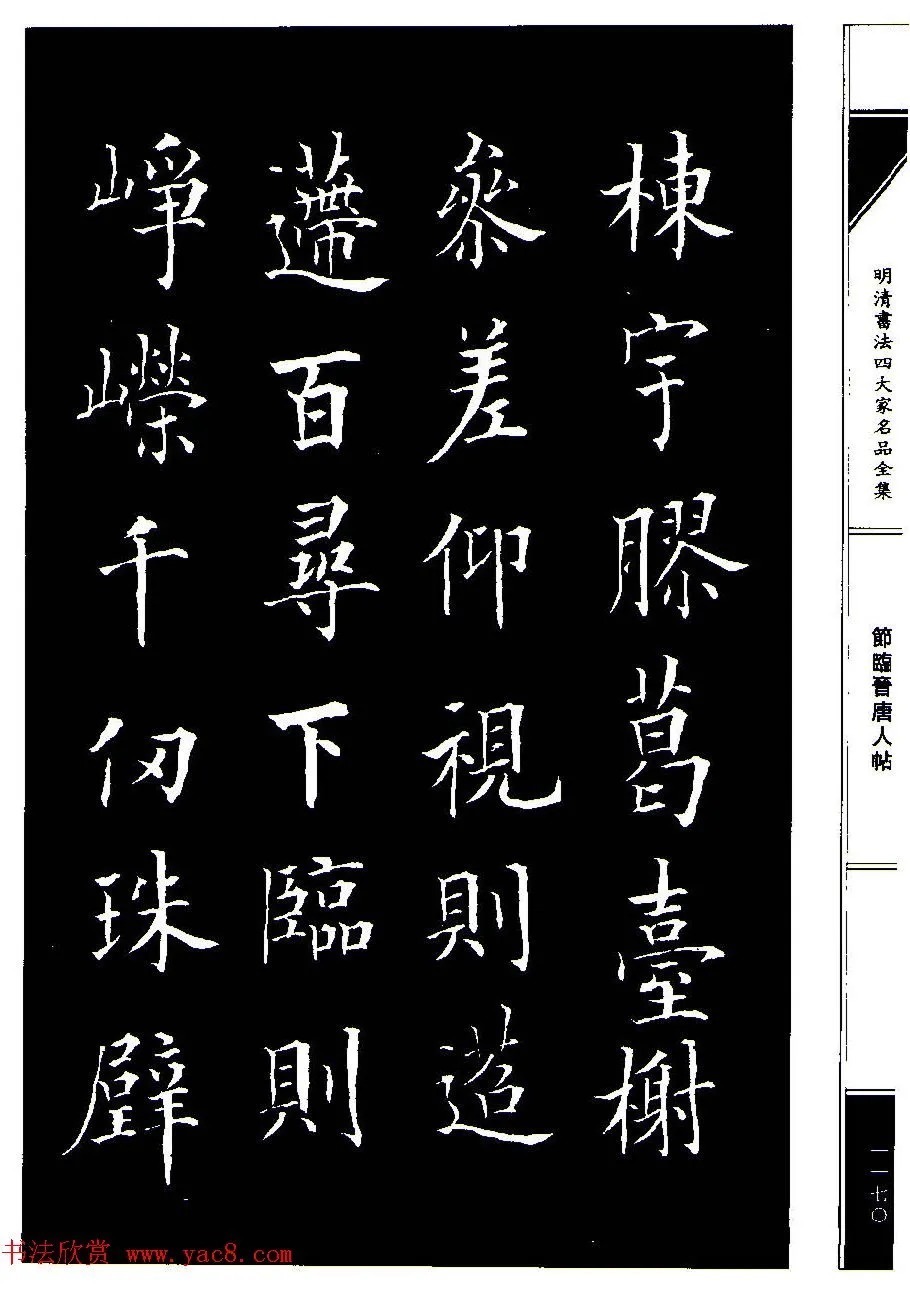 明清書法四大家名品全集
節臨晉唐人帖
一一七〇
棟宇膠葛臺榭
參差仰視則迢
遰百尋下臨則
崢嶸千仞珠壁
书法欣赏 www.yac8.com